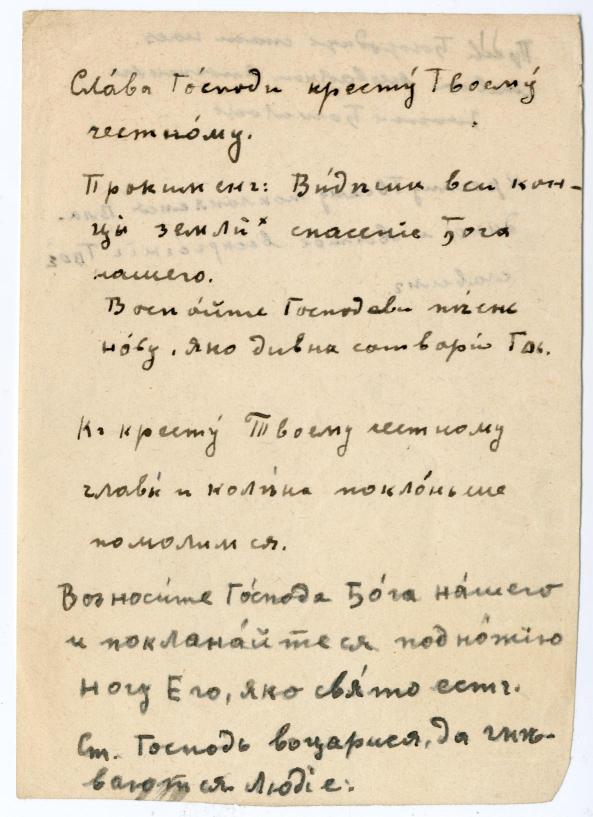 Сла́ва Го́споди кресту́ Твоему́
честно́му.
Прокименъ: Ви́дѣша вси кон-
цы́ земли́ ˣ спасеніе Бога
нашего.
Воспо́йте Господеви пѣснь
но́ву, яко дивна сотвори́ Гдь.
Къ кресту́ Твоему честному
главы́ и колѣна покло́ньше
помолимся.
Возноси́те Го́спода Бо́га на́шего
и покланя́йтеся подно́жію
ногу Его, яко свя́то есть.
Ст. Господь воцарися, да гнѣ-
ваются людіе: